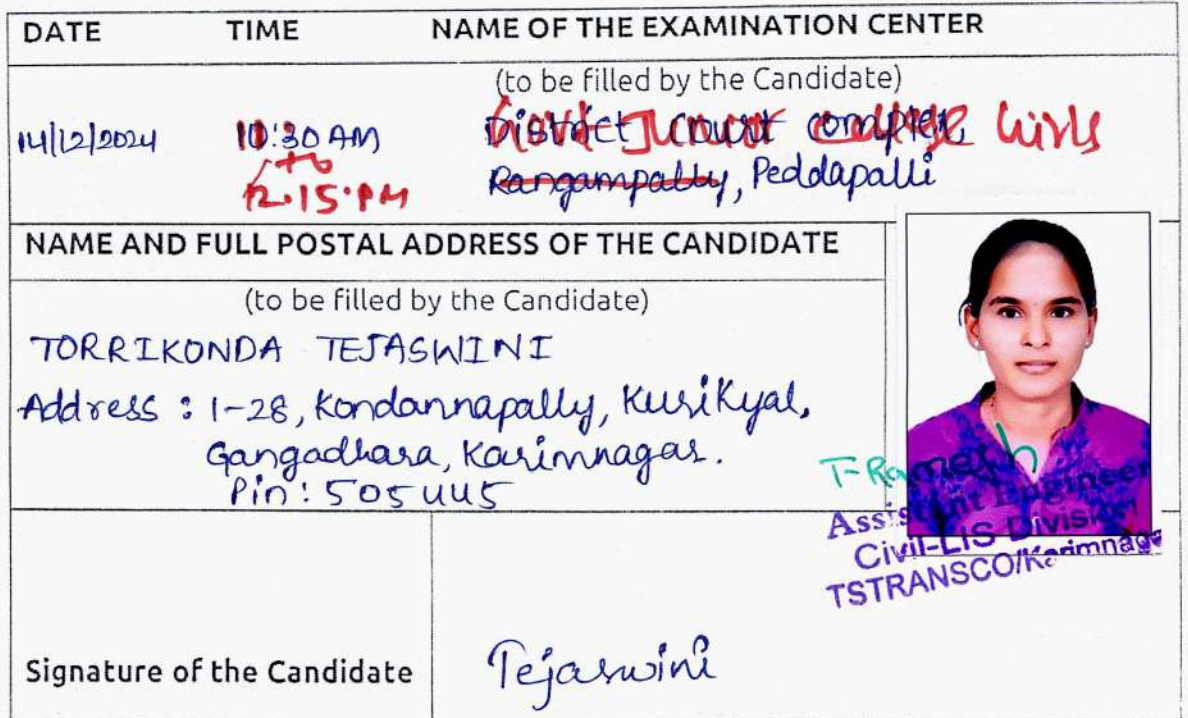 DATE TIME NAME OF THE EXAMINATION CENTER
(to be filled by the Candidate)
14/12/2024 10:30 AM District Court complex, Girls
to
12.15.PM Rangampally, Peddapalli
NAME AND FULL POSTAL ADDRESS OF THE CANDIDATE
(to be filled by the Candidate)
TORRIKONDA TEJASWINI
Address : 1-28, Kondannapally, Kurikyal,
Gangadhara, Karimnagar.
Pin: 505445
T-Ramesh
Assistant Engineer
Civil-LIS Division
TSTRANSCO/Karimnaga
Signature of the Candidate Tejaswini